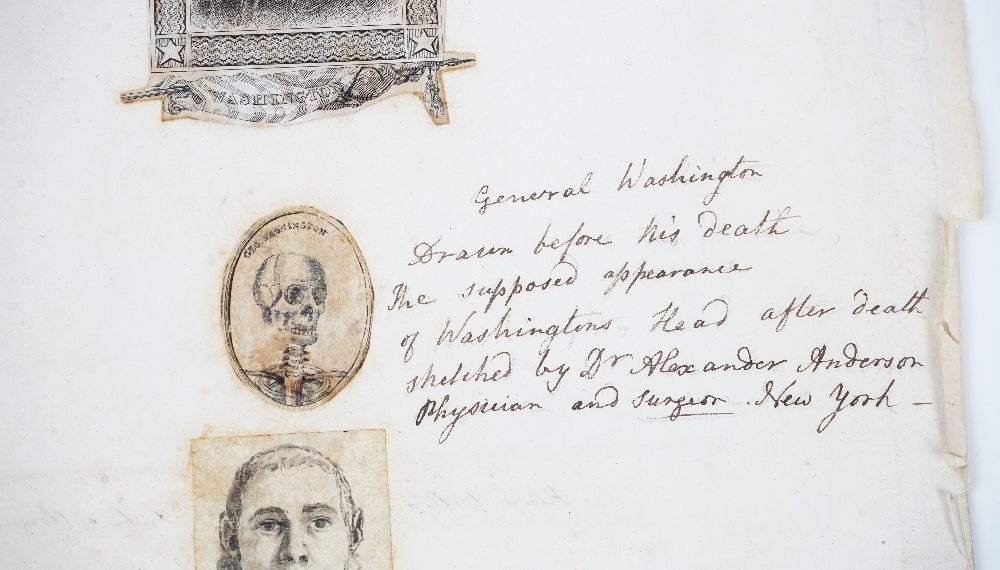 WASHINGTON
GEO. WASHINGTON
General Washington
Drawn before his death
The supposed appearance
of Washingtons Head after death
sketched by Dr Alexander Anderson
Physician and surgeon . New York —